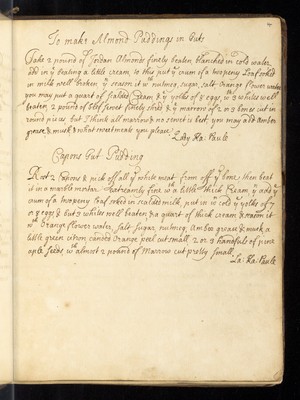 To make Almond Puddings in Guts
Take 2 pound of Jordan Almonds finely beaten, blanched in cold water,
add in yᵉ beating a little cream, to this put yᵉ crum of a twopeny Loaf soked
in milk well broken, yⁿ season it wᵗʰ nutmeg, sugar, salt, Orange flower water
you may put a quart of Cream & yᵉ yolks of 8 eggs, wᵗʰ 3 whites well
beaten, 2 pound of Beef suet finely shred & yᵉ marrow of 2 or 3 bones cut in
round pieces, But I think all marrow & no suet is best, you may add amber
grease, & musk & what sweet meats you please.
Lady Ka: Paule
Capons Gut Pudding
Rost 2 Capons & pick off all yᵉ white meat from off yᵉ bone, then beat
it in a marble mortar extreamly fine wᵗʰ a little thick Cream, & add yᵉ
crum of a twopeny Loaf soked in scalded milk, put in wⁿ cold yᵉ yolks of 7
or 8 eggs & but 3 whites well beaten, & a quart of thick cream & season it
wᵗʰ Orange flower water, salt, sugar, nutmeg, Amber grease & musk, a
little green citron, canded Orange peel cut small, 2 or 3 handfuls of pine
aple seeds wᵗʰ almost 2 pound of Marrow cut pretty small.
La: Ka: Paule